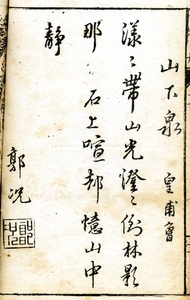 山下泉 皇甫曾
漾〻帶山光澄〻倒林影
那 石上喧却憶山中
靜
郭况